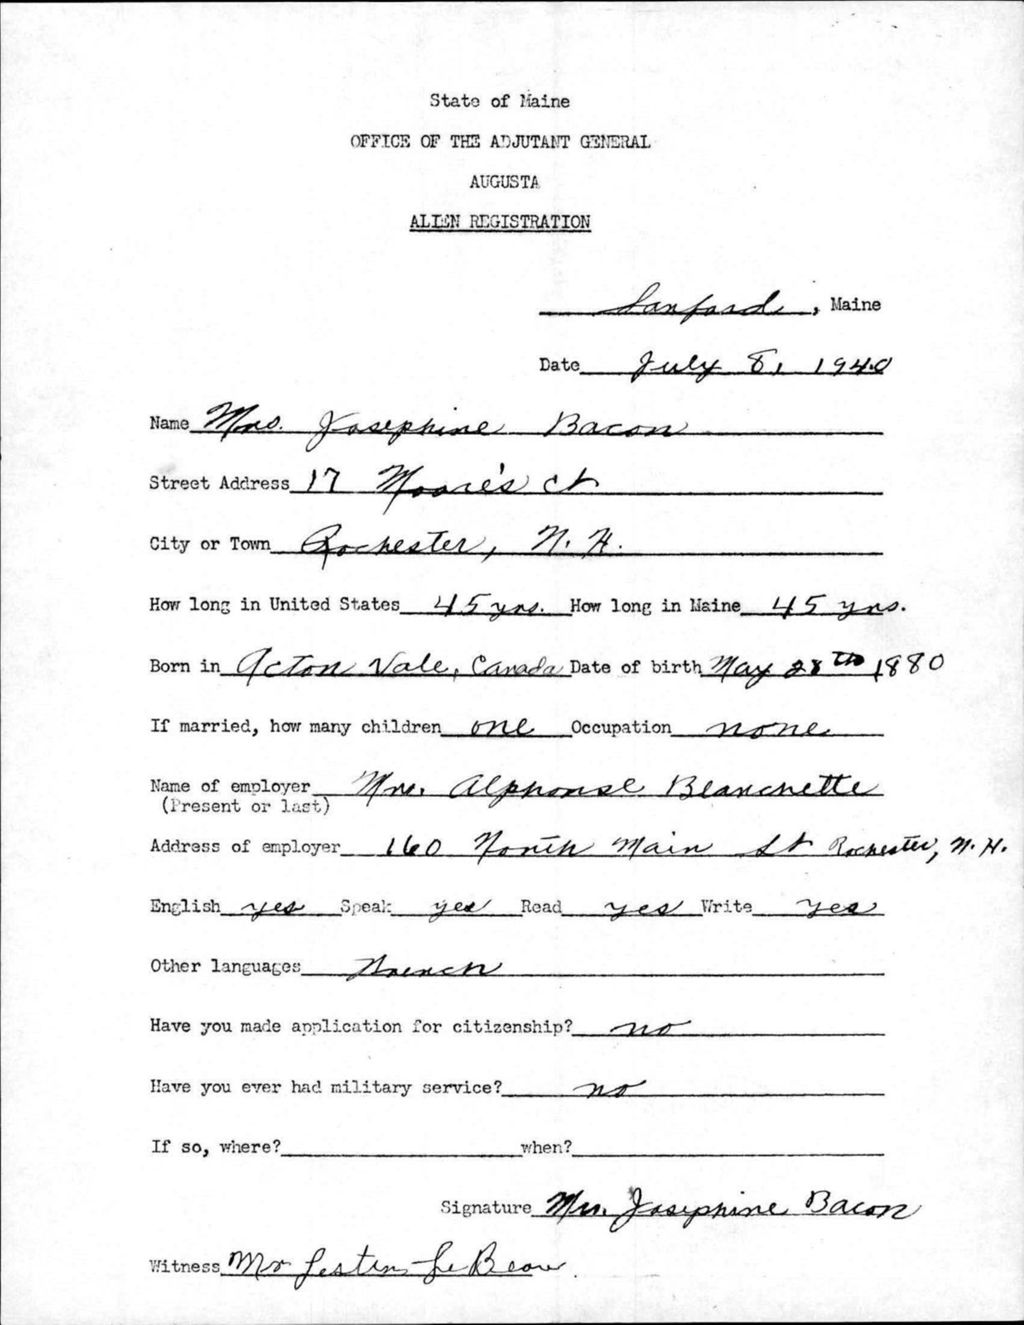 State of Maine
OFFICE OF THE ADJUTANT GENERAL
AUGUSTA
ALIEN REGISTRATION
Sanford, Maine
Date July 8, 1940
Name Mrs. Josephine Bacon
Street Address 17 Moore's Ct
City or Town Rochester, N. H.
How long in United States 45 yrs. How long in Maine 45 yrs.
Born in Acton Vale, Canada Date of birth May 28th 1880
If married, how many children one Occupation none
Name of employer Mrs. Alphonse Blanchette
(Present or last)
Address of employer 160 North Main St Rochester, N. H.
English yes Speak yes Read yes Write yes
Other languages French
Have you made application for citizenship? no
Have you ever had military service? no
If so, where? when?
Signature Mrs. Josephine Bacon
Witness Mr Le Beau